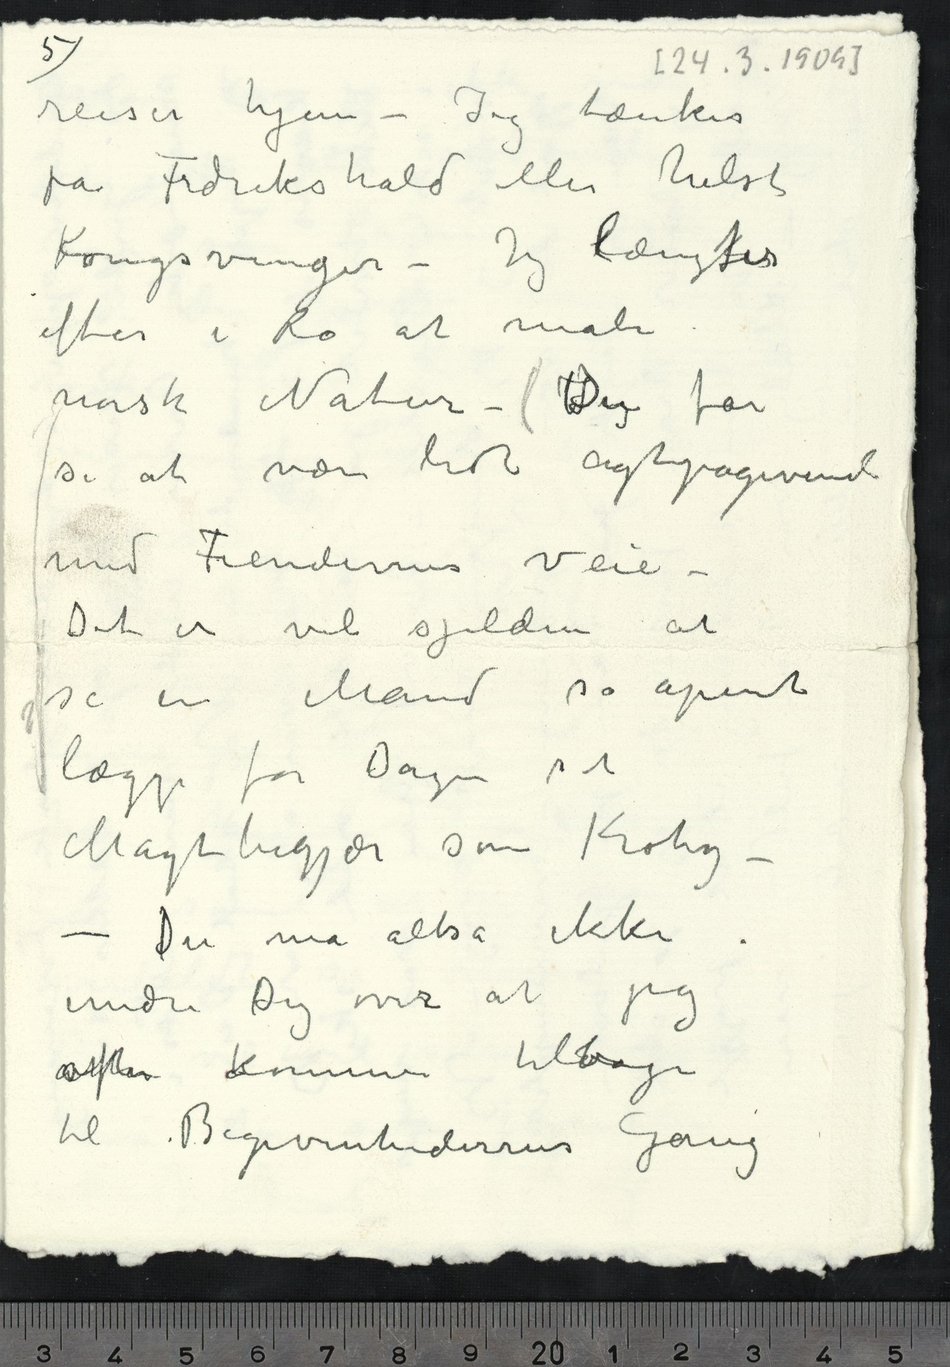 5)
[24.3.1909]
reiser hjem – Jeg tænker
på Fredrikshald eller helst
Kongsvinger – Jeg længter
efter i Ro at male
norsk Natur – (Du får
se at være lidt agtpågivend
med Fiendernes veie –
Det er vel sjelden at
se en Mand så åpent
lægge for Dagen sit
Magtbegjær som Krohg –
– Du må altså ikke
undre Dig over at jeg
kommer tilbage
til Begivenhedernes Gang
3 4 5 6 7 8 9 20 1 2 3 4 5